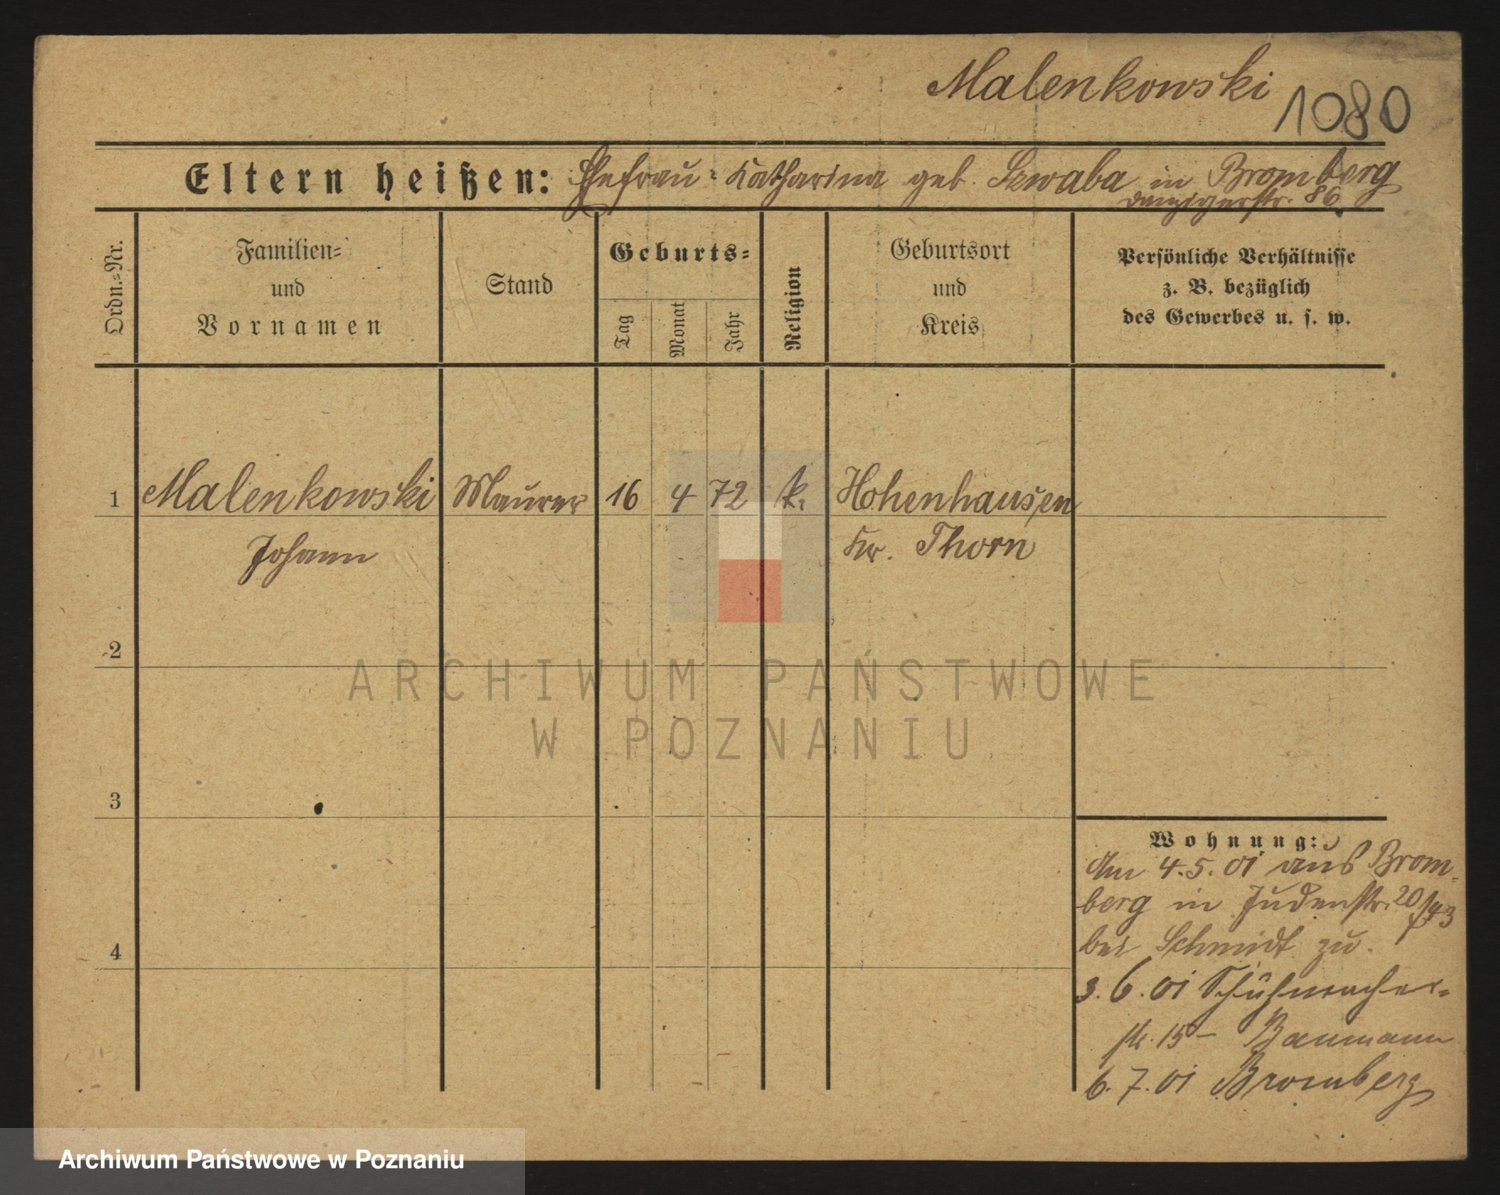 Malenkowski 1080
Eltern heißen: Ehefrau: Katharina geb. Szwaba in Bromberg
Danzigerstr. 86.
Ordn.-Nr.
Familien-
und
Vornamen
Stand
Geburts-
Tag
Monat
Jahr
Religion
Geburtsort
und
Kreis
Persönliche Verhältnisse
z. B. bezüglich
des Gewerbes u. s. w.
1 Malenkowski Maurer 16 4 72 k. Hohenhausen
Johann Kr. Thorn
2
ARCHIWUM PAŃSTWOWE
W POZNANIU
3
Wohnung:
Am 4.5.01 aus Brom-
berg in Judenstr. 20/43
bei Schmidt zu.
3.6.01 Schuhmacher-
str. 15 - Baumann
4
6.7.01 Bromberg
Archiwum Państwowe w Poznaniu